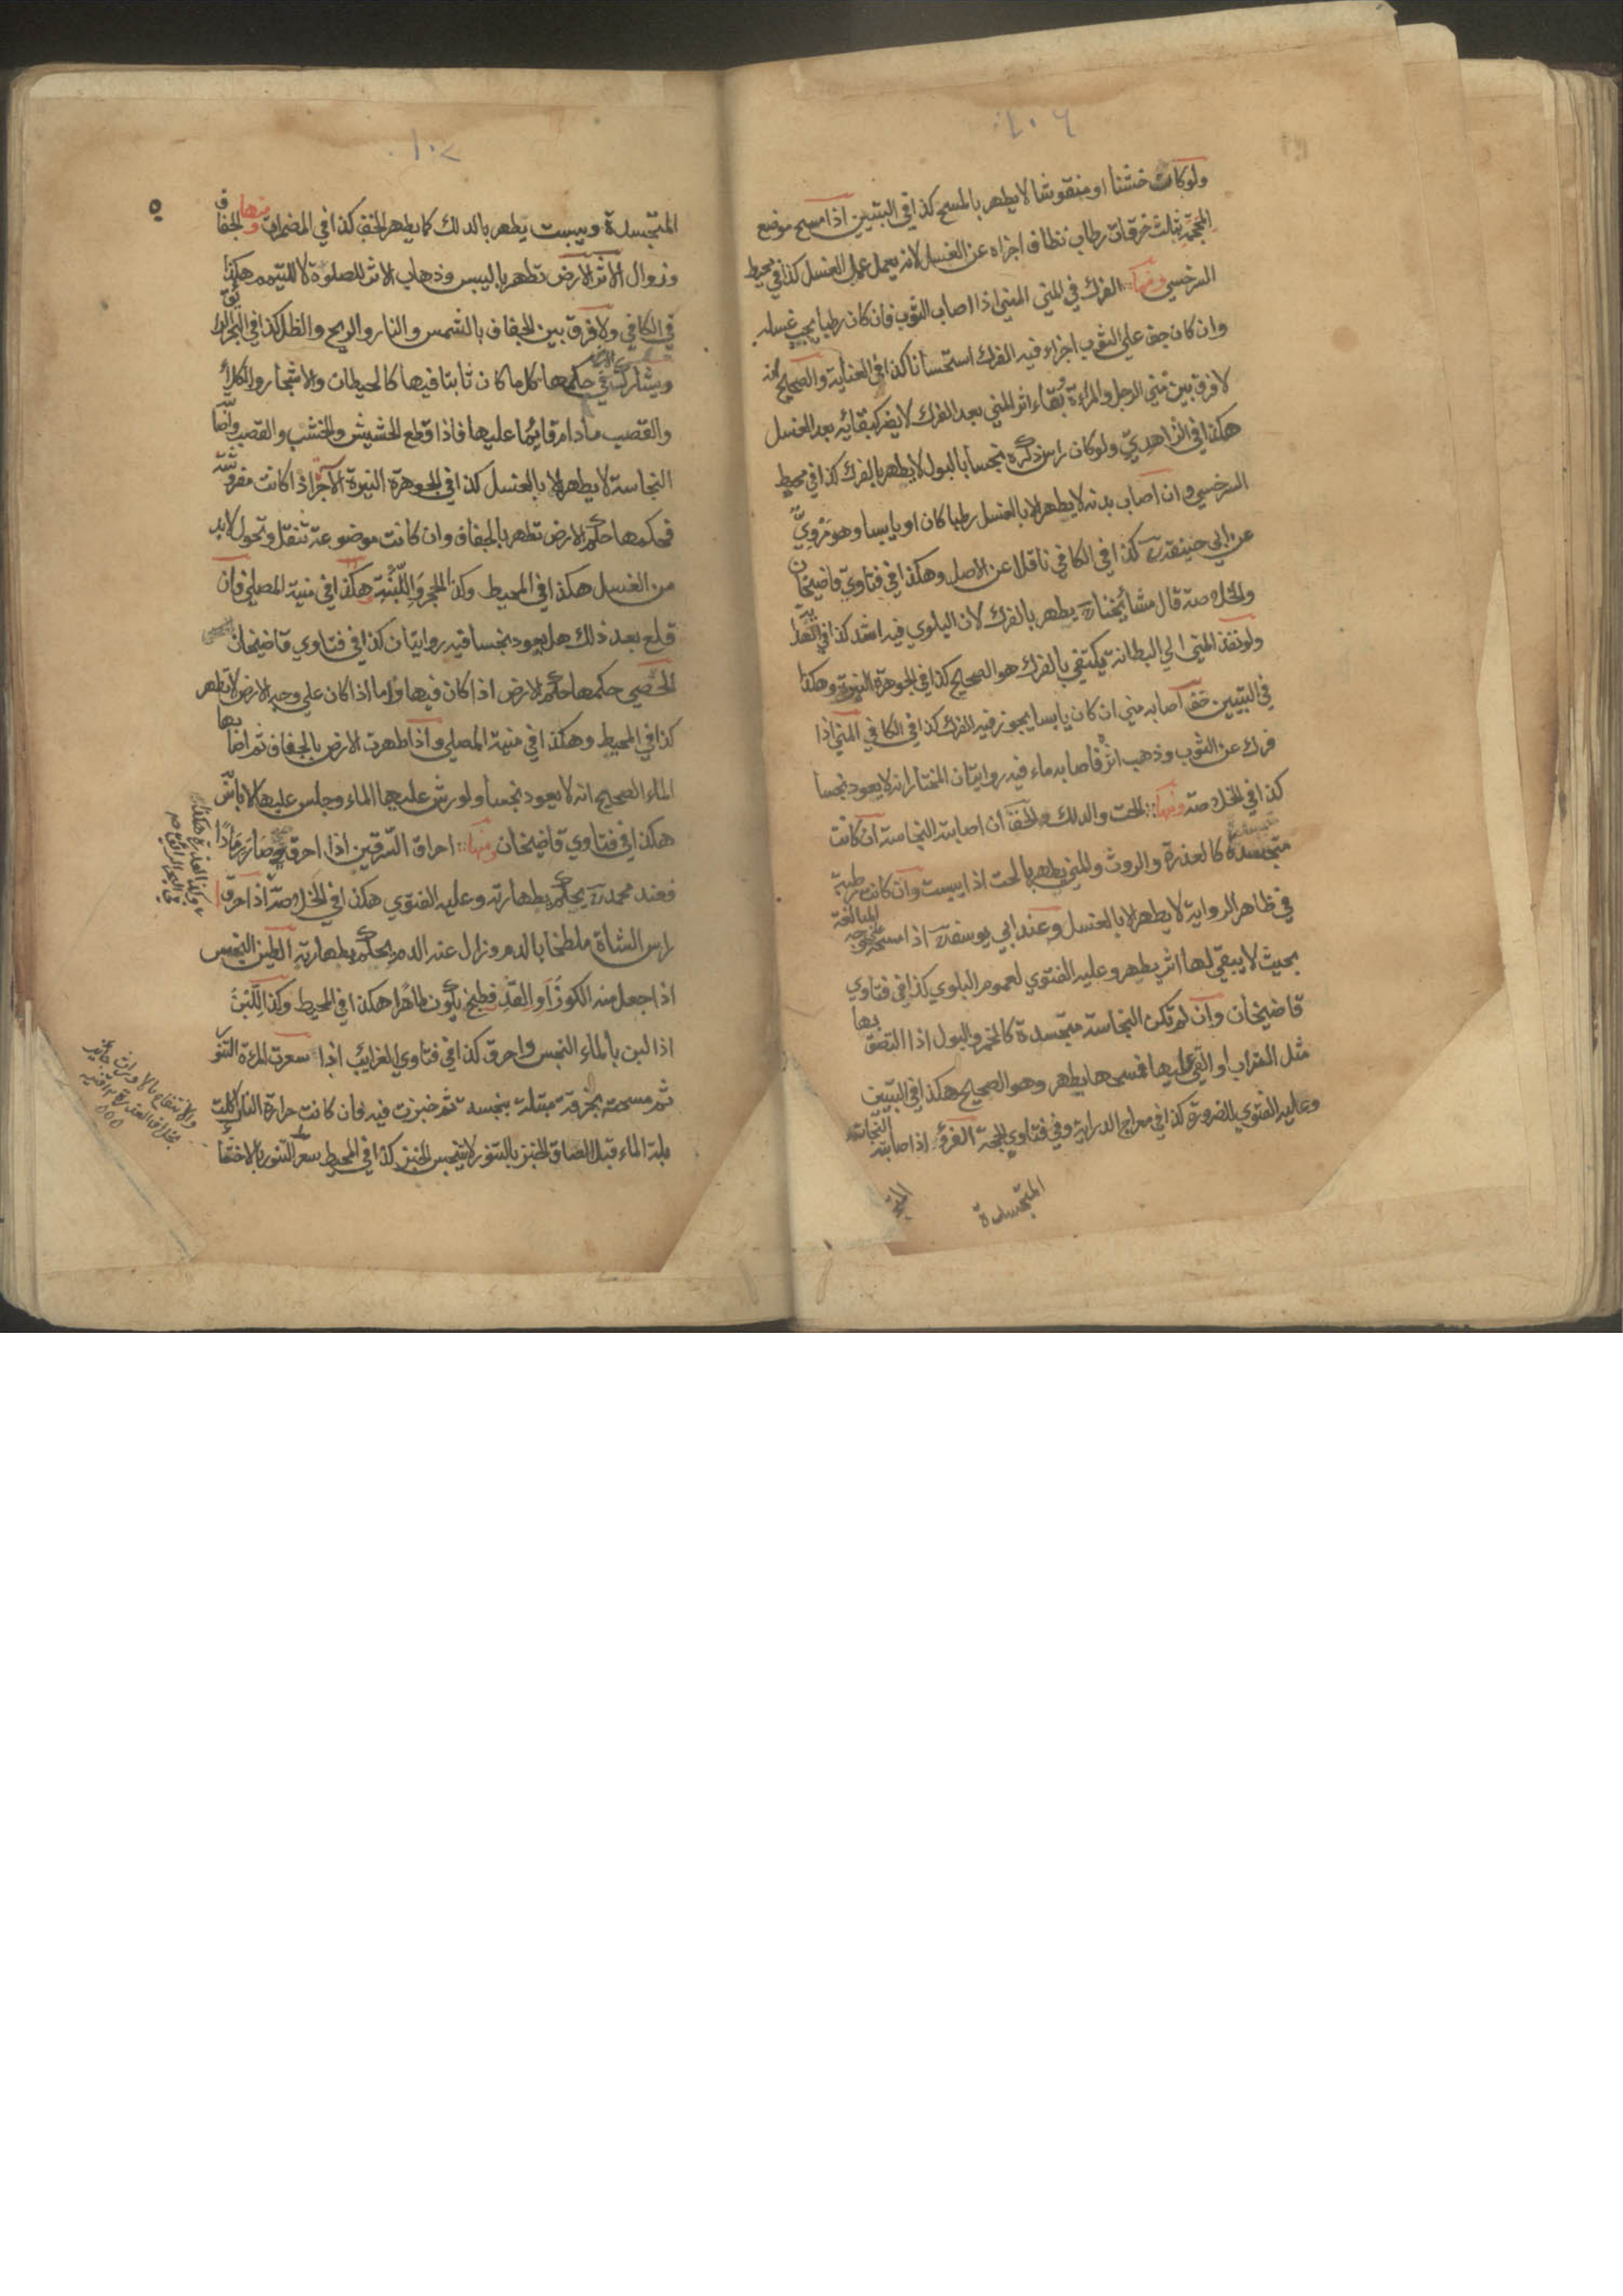 ١٠٦
ولو كانت خشنا او منقوشا لا يطهر بالمسح كذا في التبيين اذا مسح موضع
المحجمة بثلث خرقات رطاب نظاف اجزاه عن الغسل لانه يعمل عمل الغسل كذا في محيط
السرخسي ومنها الفرك في المني المني اذا اصاب الثوب فان كان رطبا يجب غسله
وان كان جف على الثوب اجزاء فيه الفرك استحسانا كذا في العناية والصحيح انه
لا فرق بين مني الرجل والمراة وبقاء اثر المني بعد الفرك لا يضر كبقائه بعد الغسل
هكذا في الزاهدي ولو كان راس ذكره نجسا بالبول لا يطهر بالفرك كذا في محيط
السرخسي وان اصاب بدنه لا يطهر الا بالغسل رطبا كان او يابسا وهو مروي
عن ابي حنيفة كذا في الكافي ناقلا عن الاصل وهكذا في فتاوي قاضيخان
والخلاصة قال مشائخنا يطهر بالفرك لان البلوي فيه اشد كذا في الهداية
ولو نفذ المني الي البطانة يكتفي بالفرك هو الصحيح كذا في الجوهرة النيرة وهكذا
في التبيين خف اصابه مني ان كان يابسا يجوز فيه الفرك كذا في الكافي المني اذا
فرك عن الثوب وذهب اثره فاصابه ماء فيه روايتان المختار انه لا يعود نجسا
كذا في الخلاصة ومنها الحت والدلك الخف ان اصابته النجاسة ان كانت
متجسدة كالعذرة والروث والمني يطهر بالحت اذا يبست وان كانت رطبة
في ظاهر الرواية لا يطهر الا بالغسل وعند ابي يوسف اذا مسحه على وجه المبالغة
بحيث لا يبقي لها اثر يطهر وعليه الفتوي لعموم البلوي كذا في فتاوي
قاضيخان وان لم تكن النجاسة متجسدة كالخمر والبول اذا التصق بها
مثل التراب او القي عليها فمسحها يطهر وهو الصحيح هكذا في التبيين
وعليه الفتوي للضرورة كذا في معراج الدراية وفي فتاوي الحجة الفرو اذا اصابته النجاسة
المتجسدة
١٠٧
المتجسدة ويبست يطهر بالدلك كما يطهر الخف كذا في المضمرات ومنها الجفاف
وزوال الاثر الارض تطهر باليبس وذهاب الاثر للصلوة لا للتيمم هكذا
في الكافي ولا فرق بين الجفاف بالشمس والنار والريح والظل كذا في البحر الرائق
ويشارك في حكمها كل ما كان ثابتا فيها كالحيطان والاشجار والكلأ
والقصب ما دام قائما عليها فاذا قطع الحشيش والخشب والقصب واصابته
النجاسة لا يطهر الا بالغسل كذا في الجوهرة النيرة الآجر اذا كانت مفروشة
فحكمها حكم الارض تطهر بالجفاف وان كانت موضوعة تنقل وتحول لا بد
من الغسل هكذا في المحيط وكذا الحجر واللبنة هكذا في منية المصلي فان
قلع بعد ذلك هل يعود نجسا فيه روايتان كذا في فتاوي قاضيخان
الحصي حكمها حكم الارض اذا كان فيها واما اذا كان علي وجه الارض لا تطهر
كذا في المحيط وهكذا في منية المصلي واذا طهرت الارض بالجفاف ثم اصابها
الماء الصحيح انه لا يعود نجسا ولو رش عليها الماء وجلس عليها لا باس
هكذا في فتاوي قاضيخان ومنها احراق السرقين اذا احرق وصار رمادا
فعند محمد يحكم بطهارته وعليه الفتوي هكذا في الخلاصة اذا احرق
راس الشاة ملطخا بالدم وزال عنه الدم يحكم بطهارته الطين النجس
اذا جعل منه الكوز او القدر فطبخ يكون طاهرا هكذا في المحيط وكذا اللبن
اذا لبن بالماء النجس واحرق كذا في فتاوي الغرائب اذا سعرت المرءة التنور
ثم مسحته بخرقة مبتلة نجسة ثم خبزت فيه فان كانت حرارة النار اكلت
بلة الماء قبل الصاق الخبز بالتنور لا يتنجس الخبز كذا في المحيط سعر التنور بالاختاء
وكذا العذرة هكذا في البحر الرائق